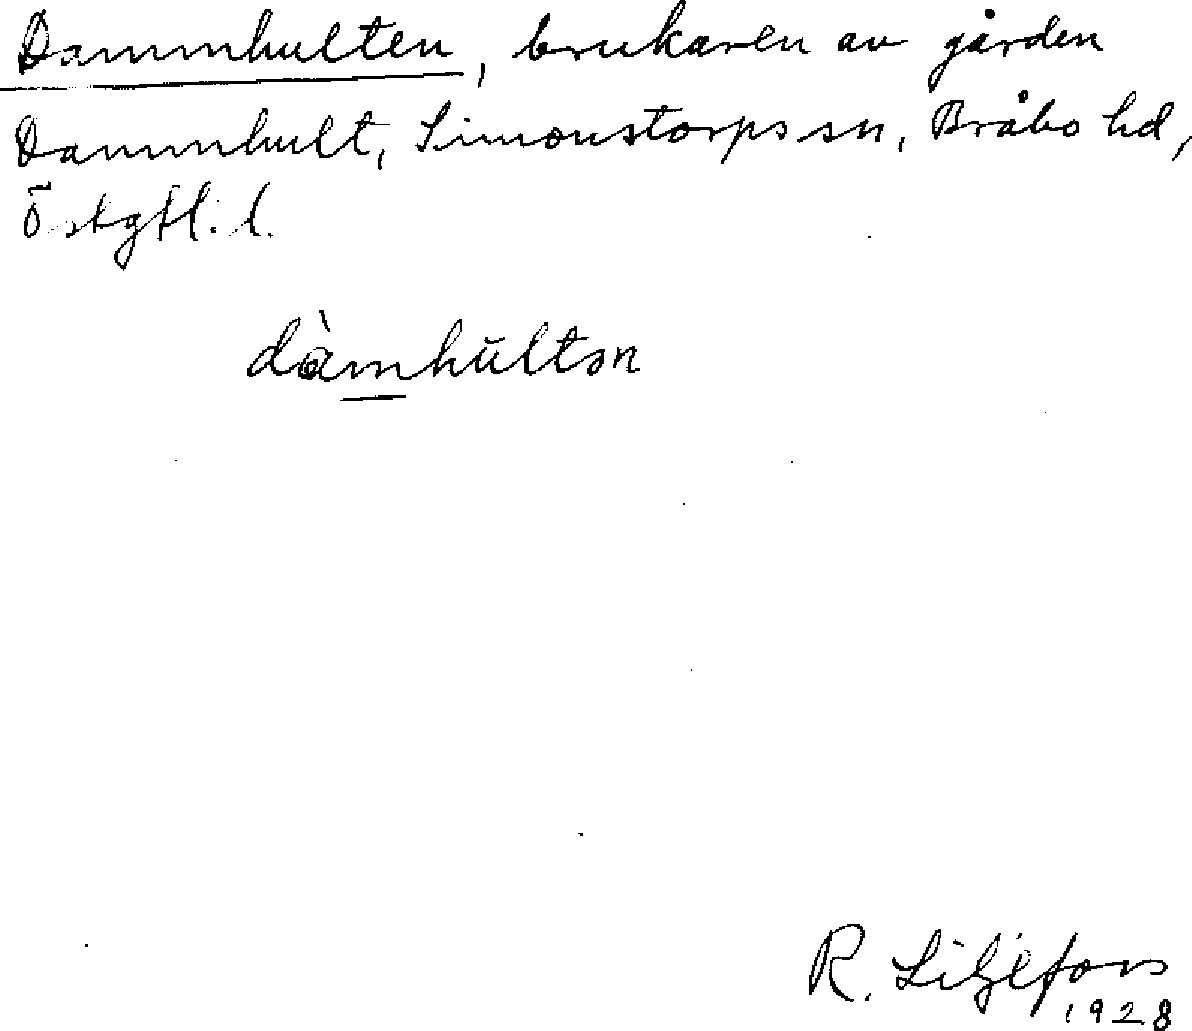 Dammhulten, brukaren av gården
Dammhult, Simonstorps sn, Bråbo hd,
Östgtl. l.
dàmhūltən
R. Liljefors
1928